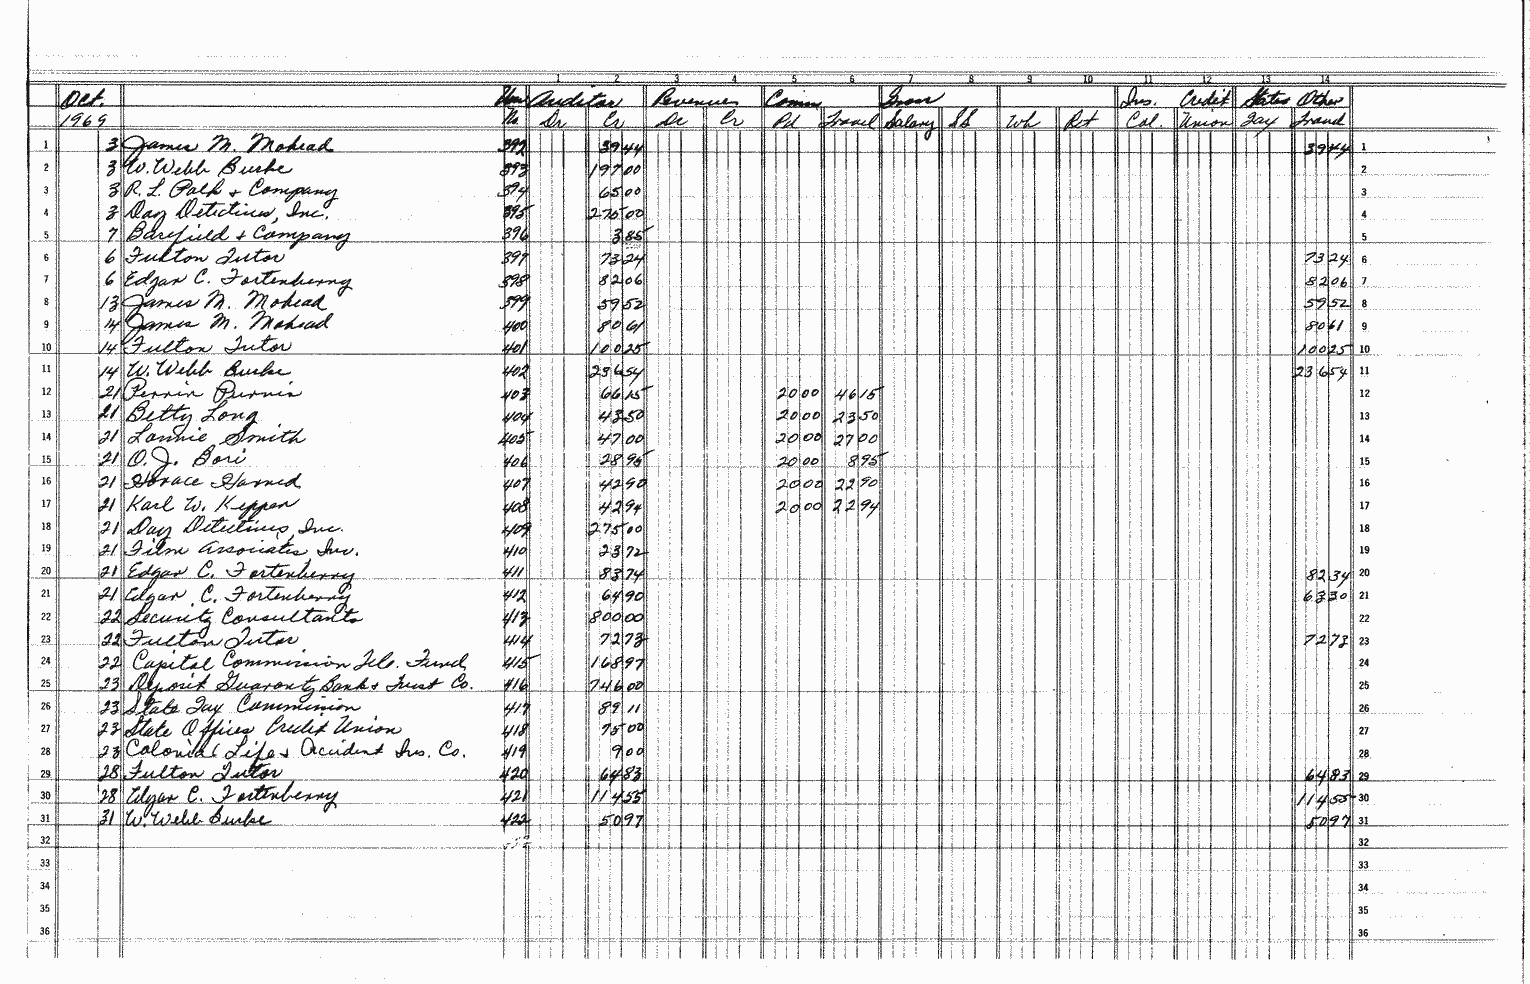 1 2 3 4 5 6 7 8 9 10 11 12 13 14
Oct. Auditor Revenues Comm Gross Ins. Credit State Other
1969 No Dr Cr Dr Cr Pd Travel Salary SS Wh Ret Col. Union Tax Travel
1 3 James M. Mohead 392 3944 3944 1
2 3 W. Webb Burke 393 19700 2
3 3 R. L. Polk & Company 394 6500 3
4 3 Day Detectives, Inc. 395 27500 4
5 7 Barefield & Company 396 385 5
6 6 Fulton Tutor 397 7324 7324 6
7 6 Edgar C. Fortenberry 398 8206 8206 7
8 13 James M. Mohead 399 5952 5952 8
9 14 James M. Mohead 400 8061 8061 9
10 14 Fulton Tutor 401 10025 10025 10
11 14 W. Webb Burke 402 23654 23654 11
12 21 Perrin Purvis 403 6615 2000 4615 12
13 21 Betty Long 404 4350 2000 2350 13
14 21 Lonnie Smith 405 4700 2000 2700 14
15 21 O. J. Bori 406 2895 2000 895 15
16 21 Horace Harned 407 4290 2000 2290 16
17 21 Karl W. Kepper 408 4294 2000 2294 17
18 21 Day Detectives, Inc. 409 27500 18
19 21 Film Associates, Inc. 410 2372 19
20 21 Edgar C. Fortenberry 411 8374 8234 20
21 21 Edgar C. Fortenberry 412 6490 6330 21
22 22 Security Consultants 413 80000 22
23 22 Fulton Tutor 414 7273 7273 23
24 22 Capital Commission Tele. Fund 415 16897 24
25 23 Deposit Guaranty Bank & Trust Co. 416 74600 25
26 23 State Tax Commission 417 8911 26
27 23 State Offices Credit Union 418 7500 27
28 23 Colonial Life & Accident Ins. Co. 419 900 28
29 28 Fulton Tutor 420 6483 6483 29
30 28 Edgar C. Fortenberry 421 11455 11455 30
31 31 W. Webb Burke 422 5097 5097 31
32 32
33 33
34 34
35 35
36 36